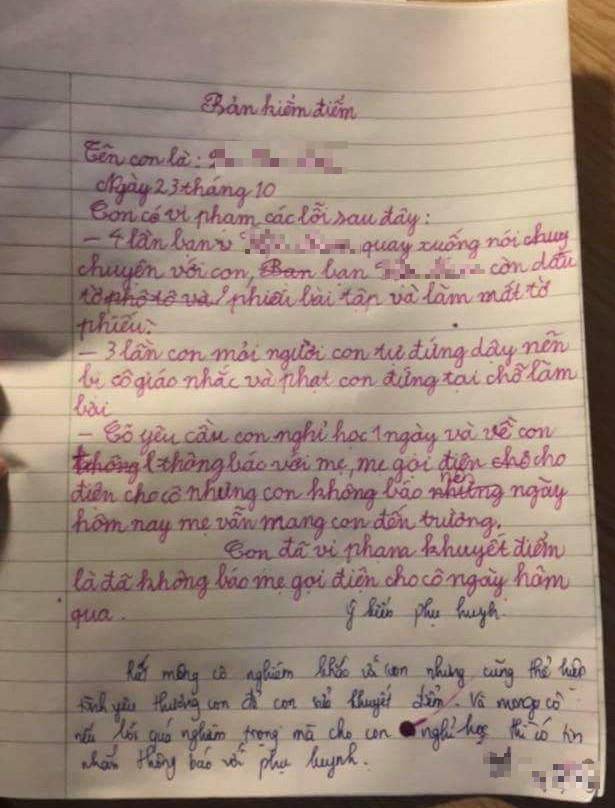 Bản kiểm điểm
Tên con là:
Ngày 23 tháng 10
Con có vi phạm các lỗi sau đây:
- 4 lần bạn quay xuống nói chung
chuyện với con, Bạn bạn còn dấu
tờ phô tô và phiếu bài tập và làm mất tờ
phiếu.
- 3 lần con mỏi người con tự đứng dậy nên
bị cô giáo nhắc và phạt con đứng tại chỗ làm
bài
- Cô yêu cầu con nghỉ học 1 ngày và về con
không thông báo với mẹ, mẹ gọi điện chô cho
điện cho cô nhưng con không bảo những nên ngày
hôm nay mẹ vẫn mang con đến trường.
Con đã vi phạm khuyết điểm
là đã không báo mẹ gọi điện cho cô ngày hôm
qua.
Ý kiến phụ huynh.
Rất mong cô nghiêm khắc với con nhưng cũng thể hiện
tình yêu thương con để con sửa khuyết điểm. Và mong cô
nếu lỗi quá nghiêm trọng mà cho con nghỉ học thì có tin
nhắn thông báo với phụ huynh.